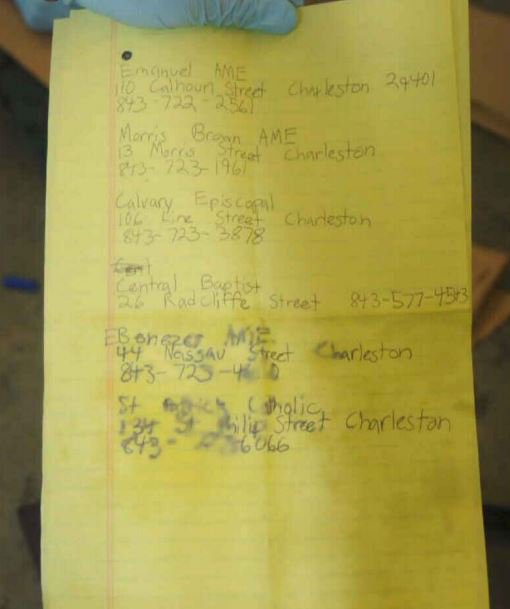 Emanuel AME
110 Calhoun Street Charleston 29401
843-722-2561
Morris Brown AME
13 Morris Street Charleston
843-723-1961
Calvary Episcopal
106 Line Street Charleston
843-723-3878
Cent
Central Baptist
26 Radcliffe Street 843-577-4543
EBenezer AME
44 Nassau Street Charleston
843-723-
St Catholic
134 St Philip Street Charleston
843- 6066